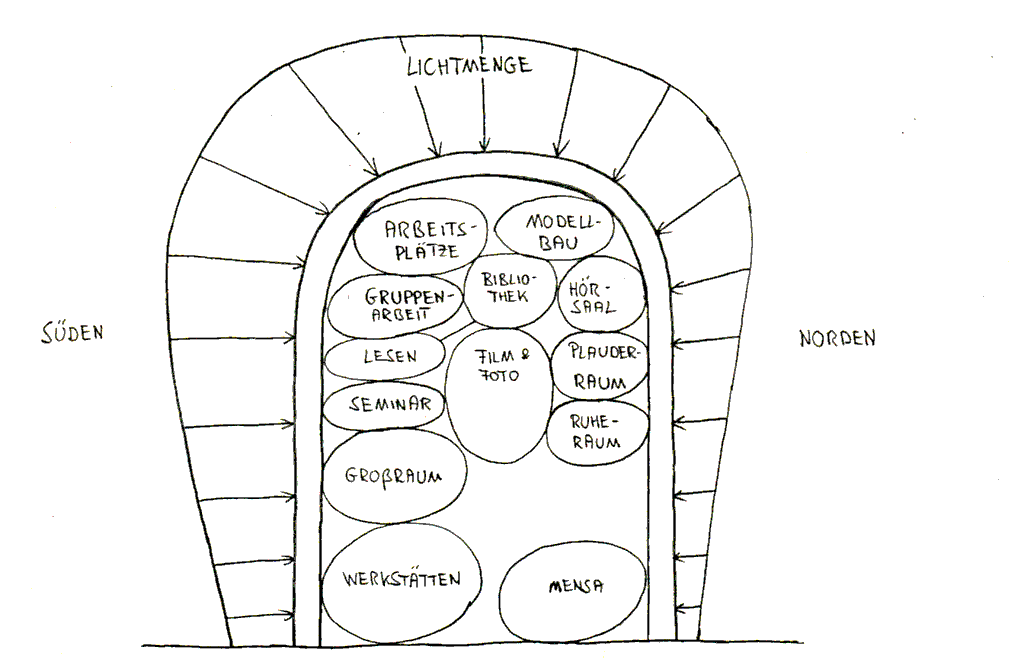 LICHTMENGE
ARBEITS-
PLÄTZE
MODELL-
BAU
BIBLIO-
THEK
HÖR-
SAAL
GRUPPEN-
ARBEIT
SÜDEN
NORDEN
LESEN
FILM &
FOTO
PLAUDER-
RAUM
SEMINAR
RUHE-
RAUM
GROßRAUM
WERKSTÄTTEN
MENSA